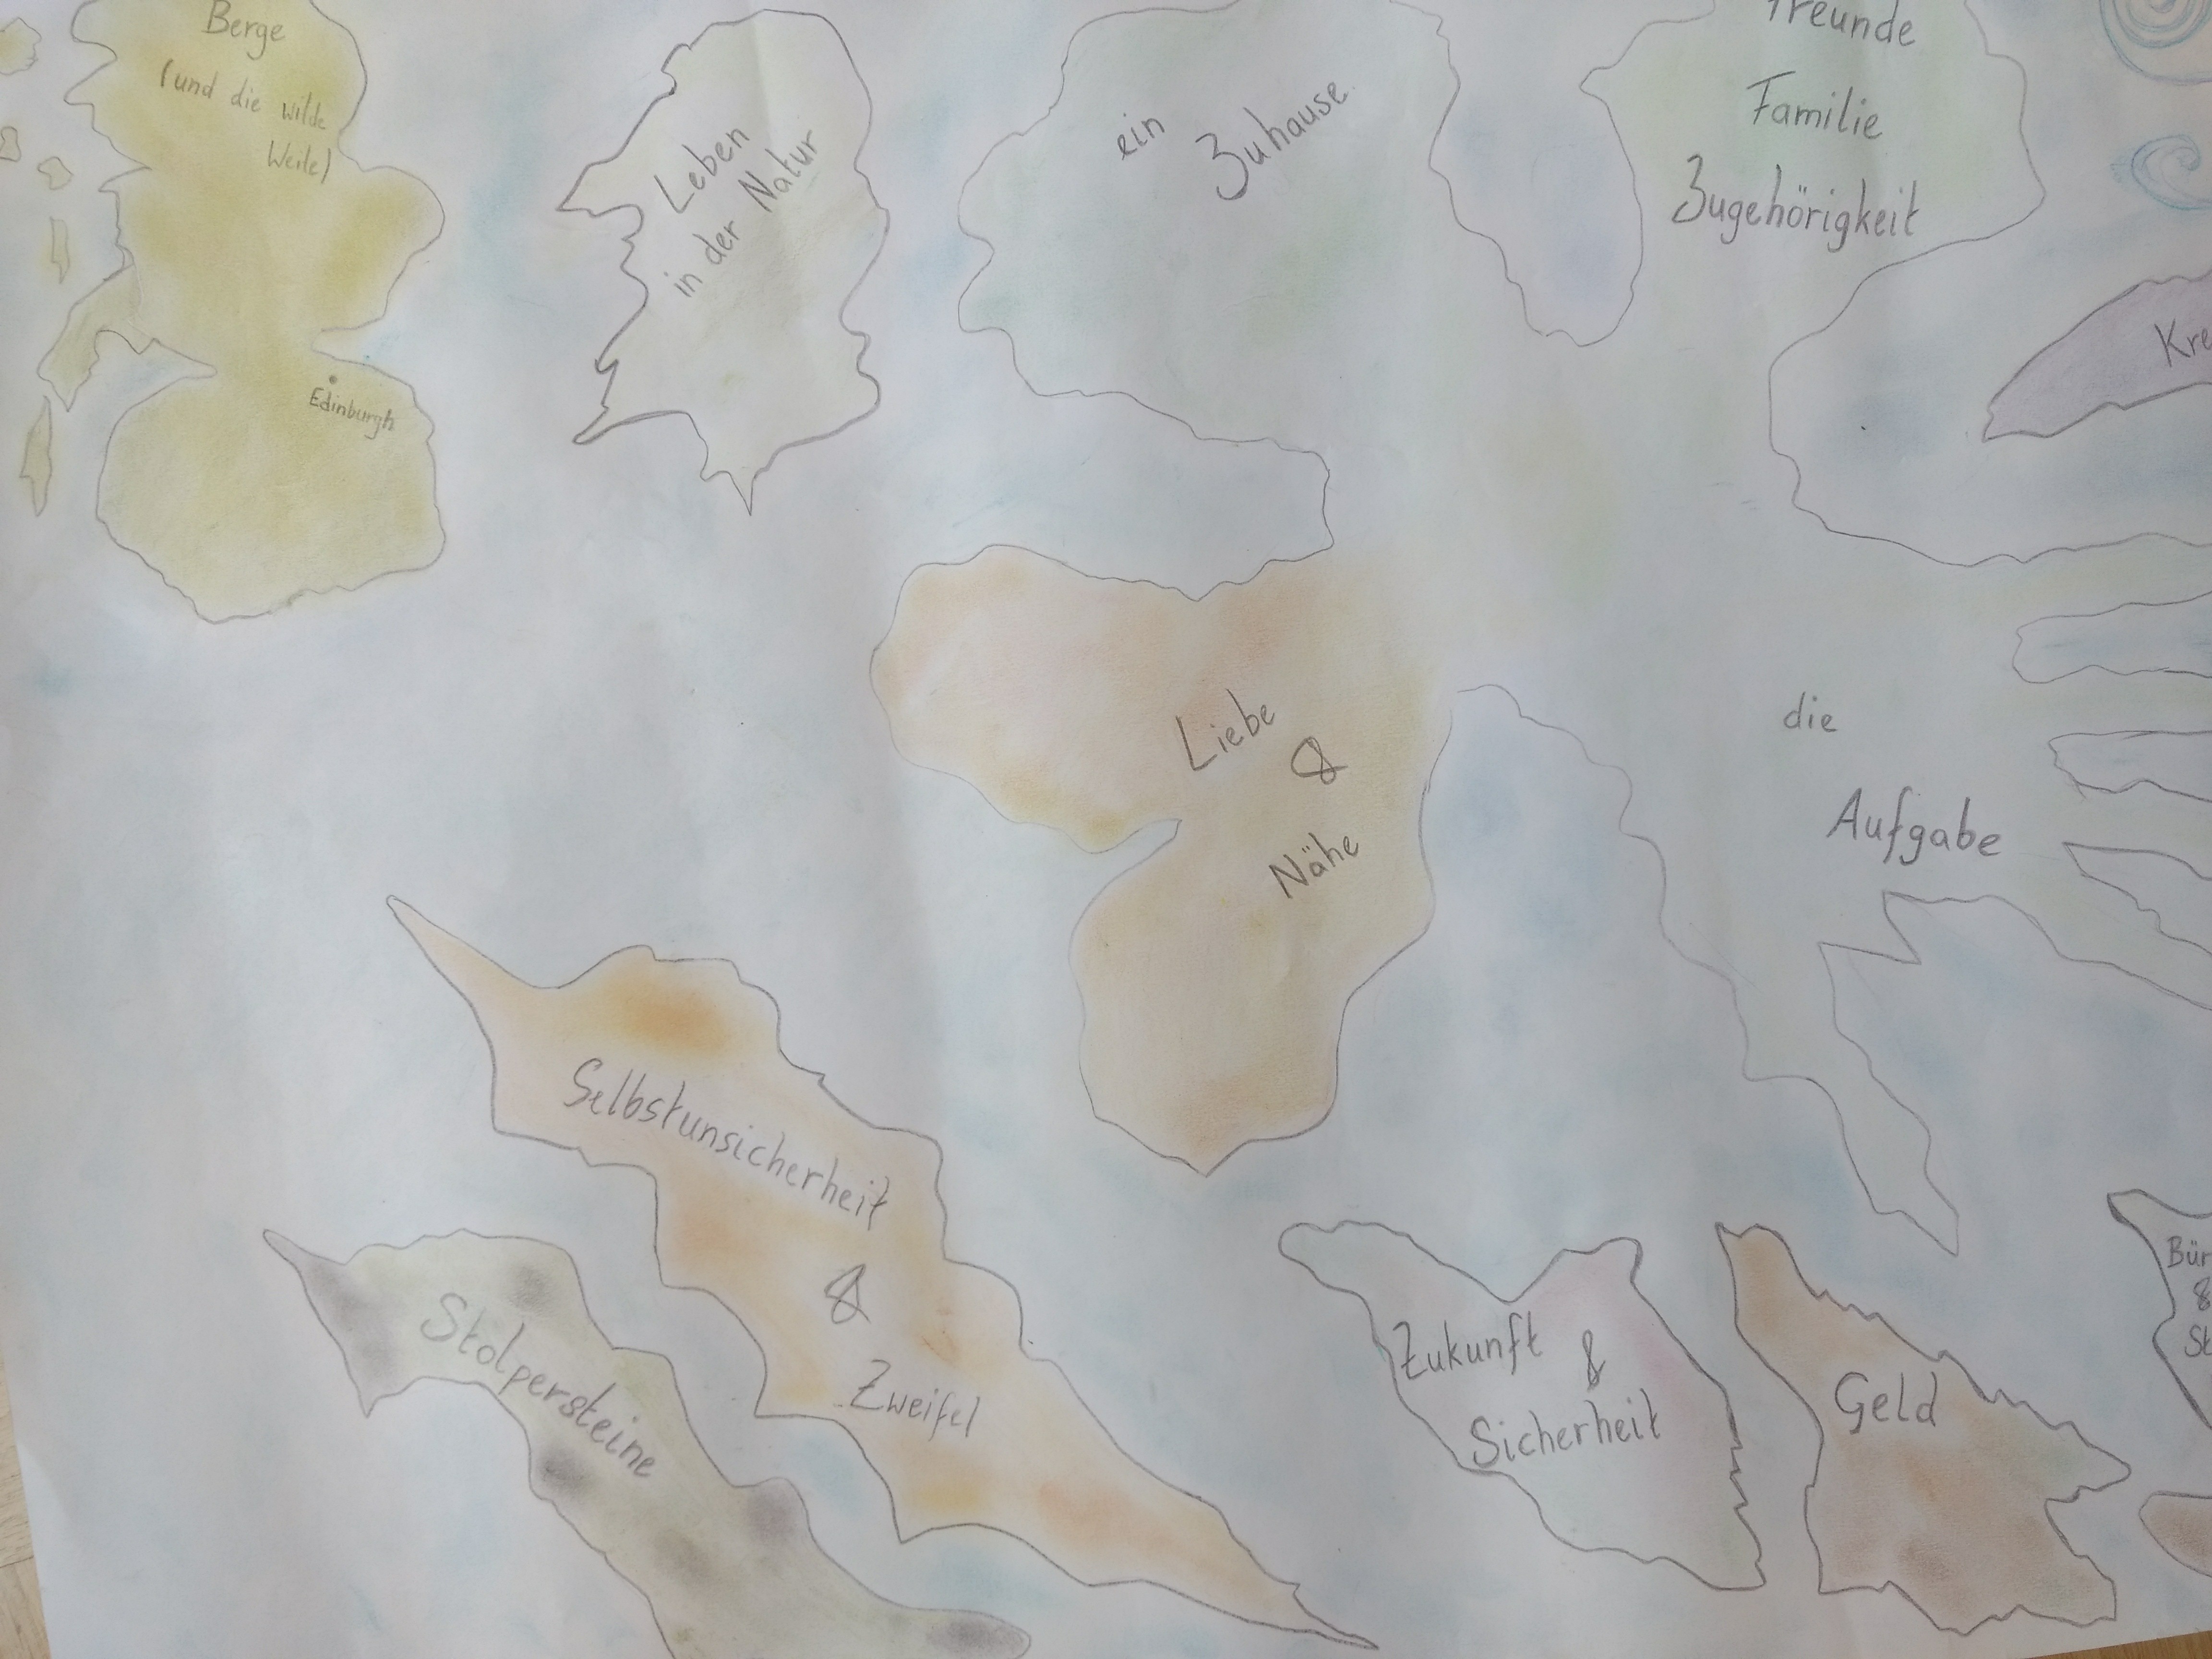 Berge
(und die wilde
Weite)
Edinburgh
Leben
in der Natur
ein Zuhause
Freunde
Familie
Zugehörigkeit
Kre
Liebe
&
Nähe
die
Aufgabe
Selbstunsicherheit
&
Zweifel
Stolpersteine
Zukunft &
Sicherheit
Geld
Bür
&
St